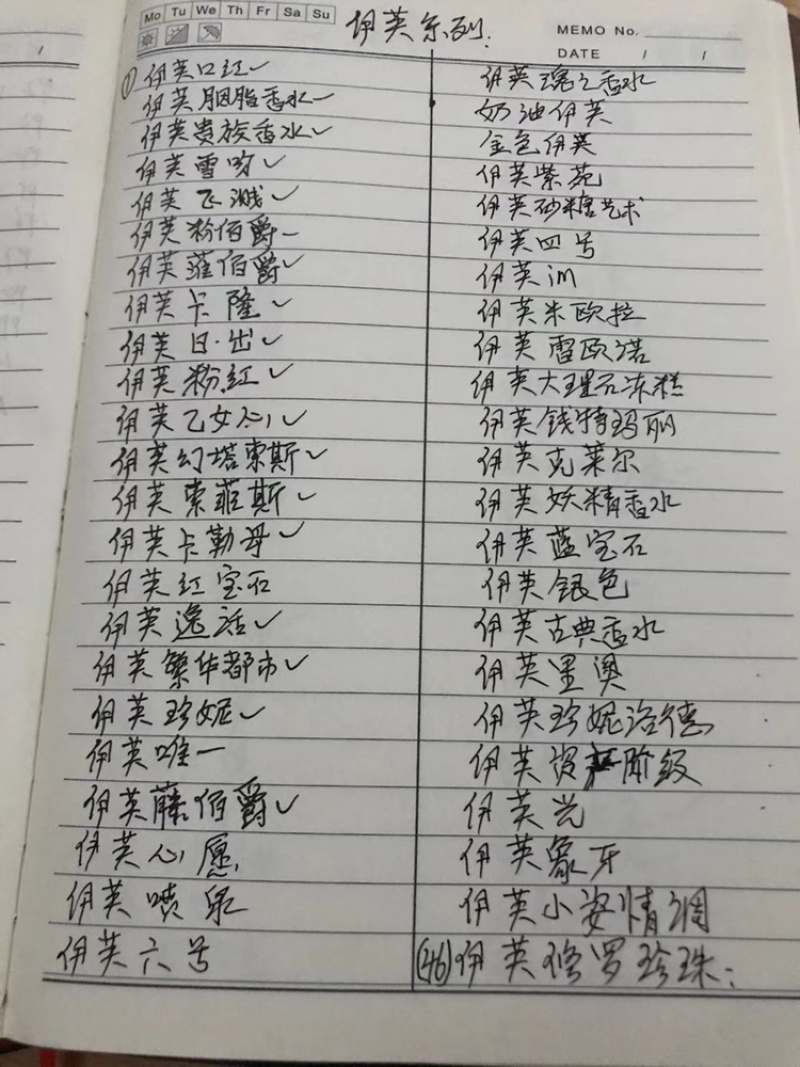 Mo Tu We Th Fr Sa Su
伊芙系列.
MEMO No.
DATE / /
/
① 伊芙口红✓
伊芙胭脂香水✓
伊芙贵族香水✓
伊芙雪吻✓
伊芙飞溅✓
伊芙粉伯爵✓
伊芙薙伯爵✓
伊芙卡隆✓
伊芙日·出✓
伊芙粉红✓
伊芙乙女心✓
伊芙幻塔索斯✓
伊芙索菲斯✓
伊芙卡勒母✓
伊芙红宝石
伊芙逸话✓
伊芙繁华都市✓
伊芙珍妮✓
伊芙唯一
伊芙藤伯爵✓
伊芙心愿
伊芙喷泉
伊芙六号
伊芙瑰之香水
奶油伊芙
金色伊芙
伊芙紫苑
伊芙砂糖艺术
伊芙四号
伊芙洲
伊芙米欧拉
伊芙雷欧诺
伊芙大理石冻糕
伊芙钱特玛丽
伊芙克莱尔
伊芙妖精香水
伊芙蓝宝石
伊芙银色
伊芙古典香水
伊芙里奥
伊芙珍妮洛德
伊芙设阶级
伊芙光
伊芙象牙
伊芙小姿情调
(46)伊芙修罗珍珠;